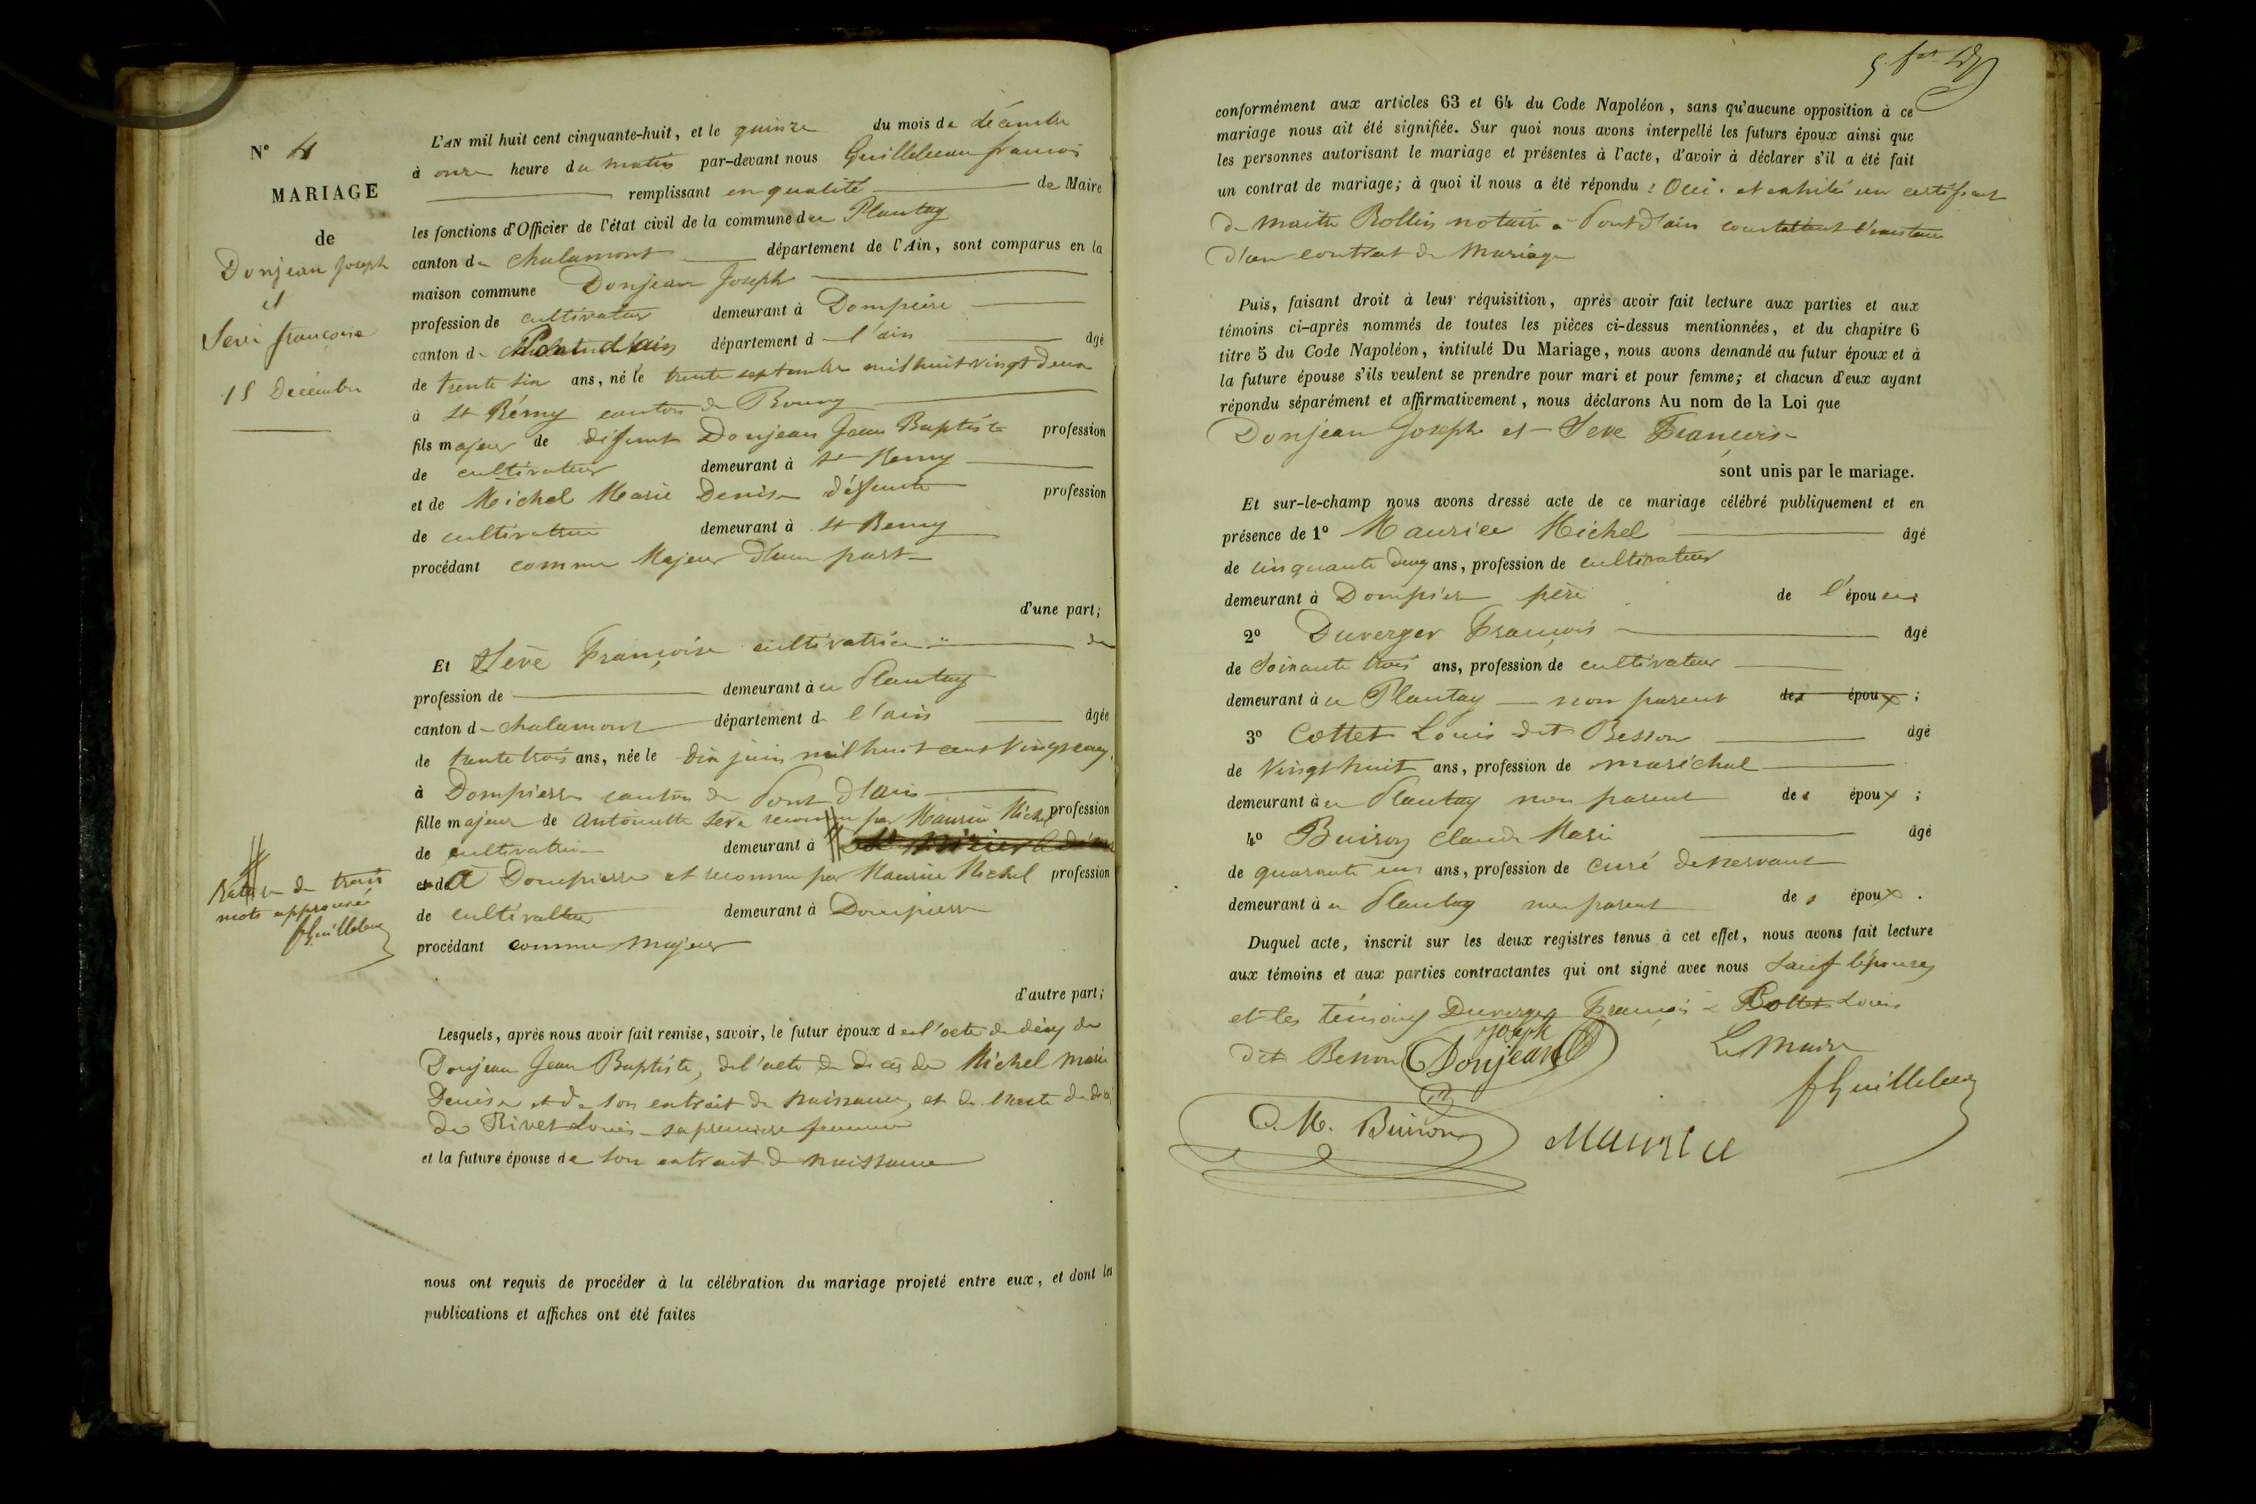 N° 4
MARIAGE
de
Donjean Joseph
et
Seve françoise
15 Décembre
Rature de trois
mots approuvée
fGuillebeau
L'AN mil huit cent cinquante-huit, et le quinze du mois de décembre
à onze heure du matin par-devant nous Guillebeau françois
remplissant en qualité de Maire
les fonctions d'Officier de l'état civil de la commune du Plantay
canton de chalamont département de l'Ain, sont comparus en la
maison commune Donjean Joseph
profession de cultivateur demeurant à Dompiere
canton de Pont d'ain département d l'ain âgé
de trente six ans, né le trente septembre mil huit vingt deux
à St Rémy canton de Bourg
fils majeur de défunt Donjean Jean Baptiste profession
de cultivateur demeurant à St Remy
et de Michel Marie Denise défunte profession
de cultivatrice demeurant à St Remy
procédant comme Majeur d'une part
d'une part;
Et Sève Françoise cultivatrice de
profession de demeurant à u Plantay
canton de chalamont département de l'ain âgée
de trente trois ans, née le dix juin mil huit cent vingt cinq
à Dompierre canton de Pont d'ain
fille majeur de Antoinette Sève reconnu par Maurice Michel profession
de cultivatrice demeurant à
et de A Dompierre et reconnu par Maurice Michel profession
de cultivateur demeurant à Dompierre
procédant comme Majeur
d'autre part;
Lesquels, après nous avoir fait remise, savoir, le futur époux de l'acte de décès de
Donjean Jean Baptiste, de l'acte de décès de Michel Marie
Denise et de son extrait de naissance, et de l'acte de décè
de Rivet Louis sa premiere femme
et la future épouse de son extrait de naissance
nous ont requis de procéder à la célébration du mariage projeté entre eux, et dont les
publications et affiches ont été faites
conformément aux articles 63 et 64 du Code Napoléon, sans qu'aucune opposition à ce
mariage nous ait été signifiée. Sur quoi nous avons interpellé les futurs époux ainsi que
les personnes autorisant le mariage et présentes à l'acte, d'avoir à déclarer s'il a été fait
un contrat de mariage; à quoi il nous a été répondu : Oui. et exhibé un certificat
de maitre Rollin notaire a Pont d'ain constattant l'existance
d'un contrat de Mariage
Puis, faisant droit à leur réquisition, après avoir fait lecture aux parties et aux
témoins ci-après nommés de toutes les pièces ci-dessus mentionnées, et du chapitre 6
titre 5 du Code Napoléon, intitulé Du Mariage, nous avons demandé au futur époux et à
la future épouse s'ils veulent se prendre pour mari et pour femme; et chacun d'eux ayant
répondu séparément et affirmativement, nous déclarons Au nom de la Loi que
Donjean Joseph et Seve Françoise
sont unis par le mariage.
Et sur-le-champ nous avons dressé acte de ce mariage célébré publiquement et en
présence de 1° Maurice Michel âgé
de cinquante deux ans, profession de cultivateur
demeurant à Dompierre père de l'épouse
2° Duverger François âgé
de Soixante trois ans, profession de cultivateur
demeurant à u Plantay non parent des époux ;
3° Cottet Louis dit Besson âgé
de Vingt huit ans, profession de maréchal
demeurant à u Plantay non parent des époux ;
4° Buiron Claude Marie âgé
de quarante un ans, profession de curé desservant
demeurant à u Plantay non parent des époux .
Duquel acte, inscrit sur les deux registres tenus à cet effet, nous avons fait lecture
aux témoins et aux parties contractantes qui ont signé avec nous Sauf l'épouse
et les témoins Duverger François Cottet Louis
dit Besson Joseph Donjean Le Maire
fGuillebeau
C. M. Buiron Maurice